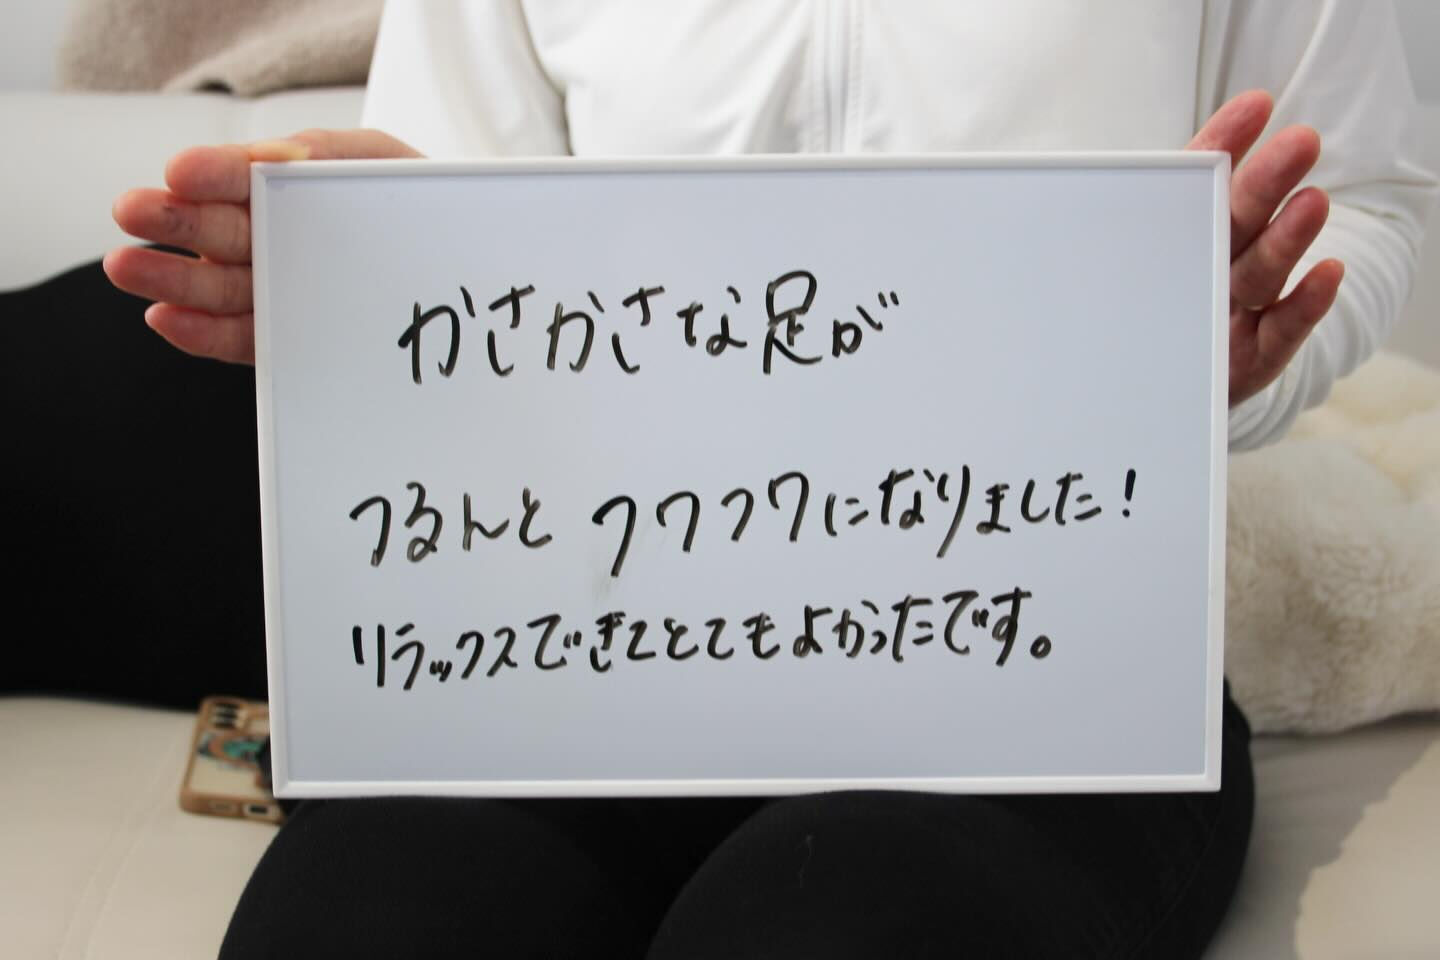 かさかさな足が
つるんとフワフワになりました!
リラックスできてとてもよかったです。